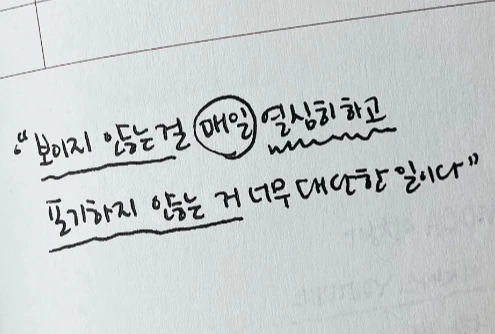 “보이지 않는걸 매일 열심히하고
포기하지 않는 거 너무 대단한 일이다”